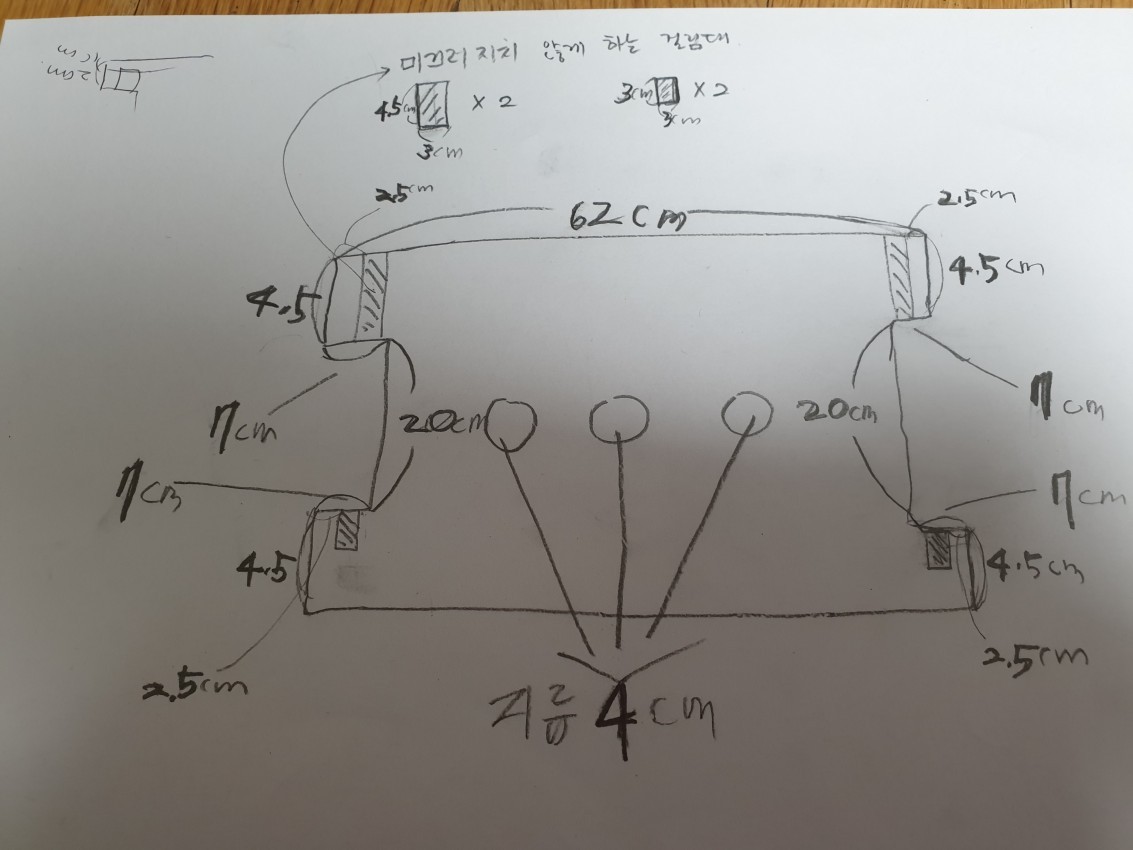 미끄러지지 않게 하는 걸림대
4.5cm
× 2
3cm
3cm
× 2
3cm
2cm
2.5cm
62cm
2.5cm
4.5
4.5cm
7cm
20cm
20cm
7cm
7cm
7cm
4.5
4.5cm
2.5cm
2.5cm
지름 4cm